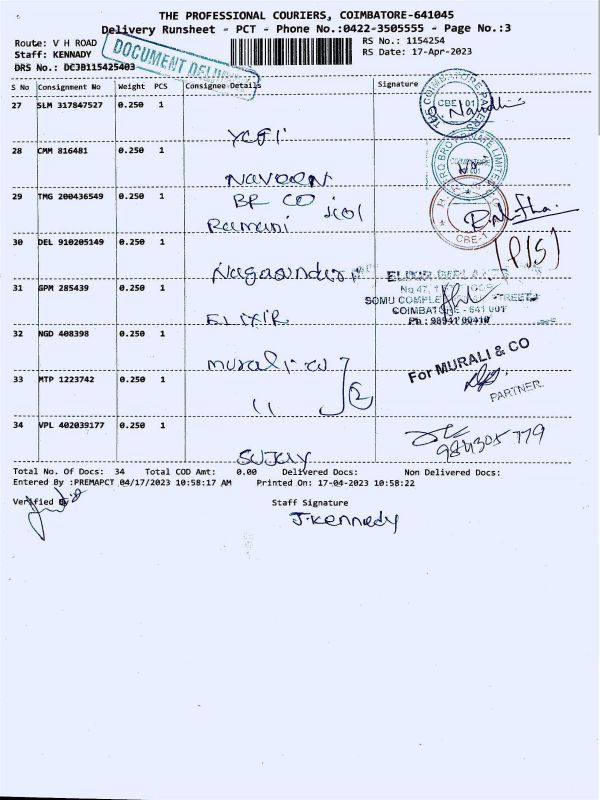 THE PROFESSIONAL COURIERS, COIMBATORE-641045
Delivery Runsheet - PCT - Phone No.:0422-3505555 - Page No.:3
Route: V H ROAD
RS No.: 1154254
Staff: KENNADY
RS Date: 17-Apr-2023
DRS No.: DCJB115425403
DOCUMENT
S No Consignment No Weight PCS Consignee Details Signature
27 SLM 317847527 0.250 1
CBE 01
28 CMM 816481 0.250 1
NAVEEN
29 TMG 200436549 0.250 1
BR CO
Ramani
CBE-1
30 DEL 910205149 0.250 1
(P/S)
31 GPM 285439 0.250 1
ELIXIR
No.47,
SOMU COMPLE
COIMBATORE - 641 001
Ph : 98941 00410
ELIXIR
32 NGD 408398 0.250 1
murali
For MURALI & CO
PARTNER
33 MTP 1223742 0.250 1
" 2
34 VPL 402039177 0.250 1
SUJAY
Total No. Of Docs: 34 Total COD Amt: 0.00 Delivered Docs: Non Delivered Docs:
Entered By :PREMAPCT 04/17/2023 10:58:17 AM Printed On: 17-04-2023 10:58:22
Verified By
Staff Signature
J.Kennedy